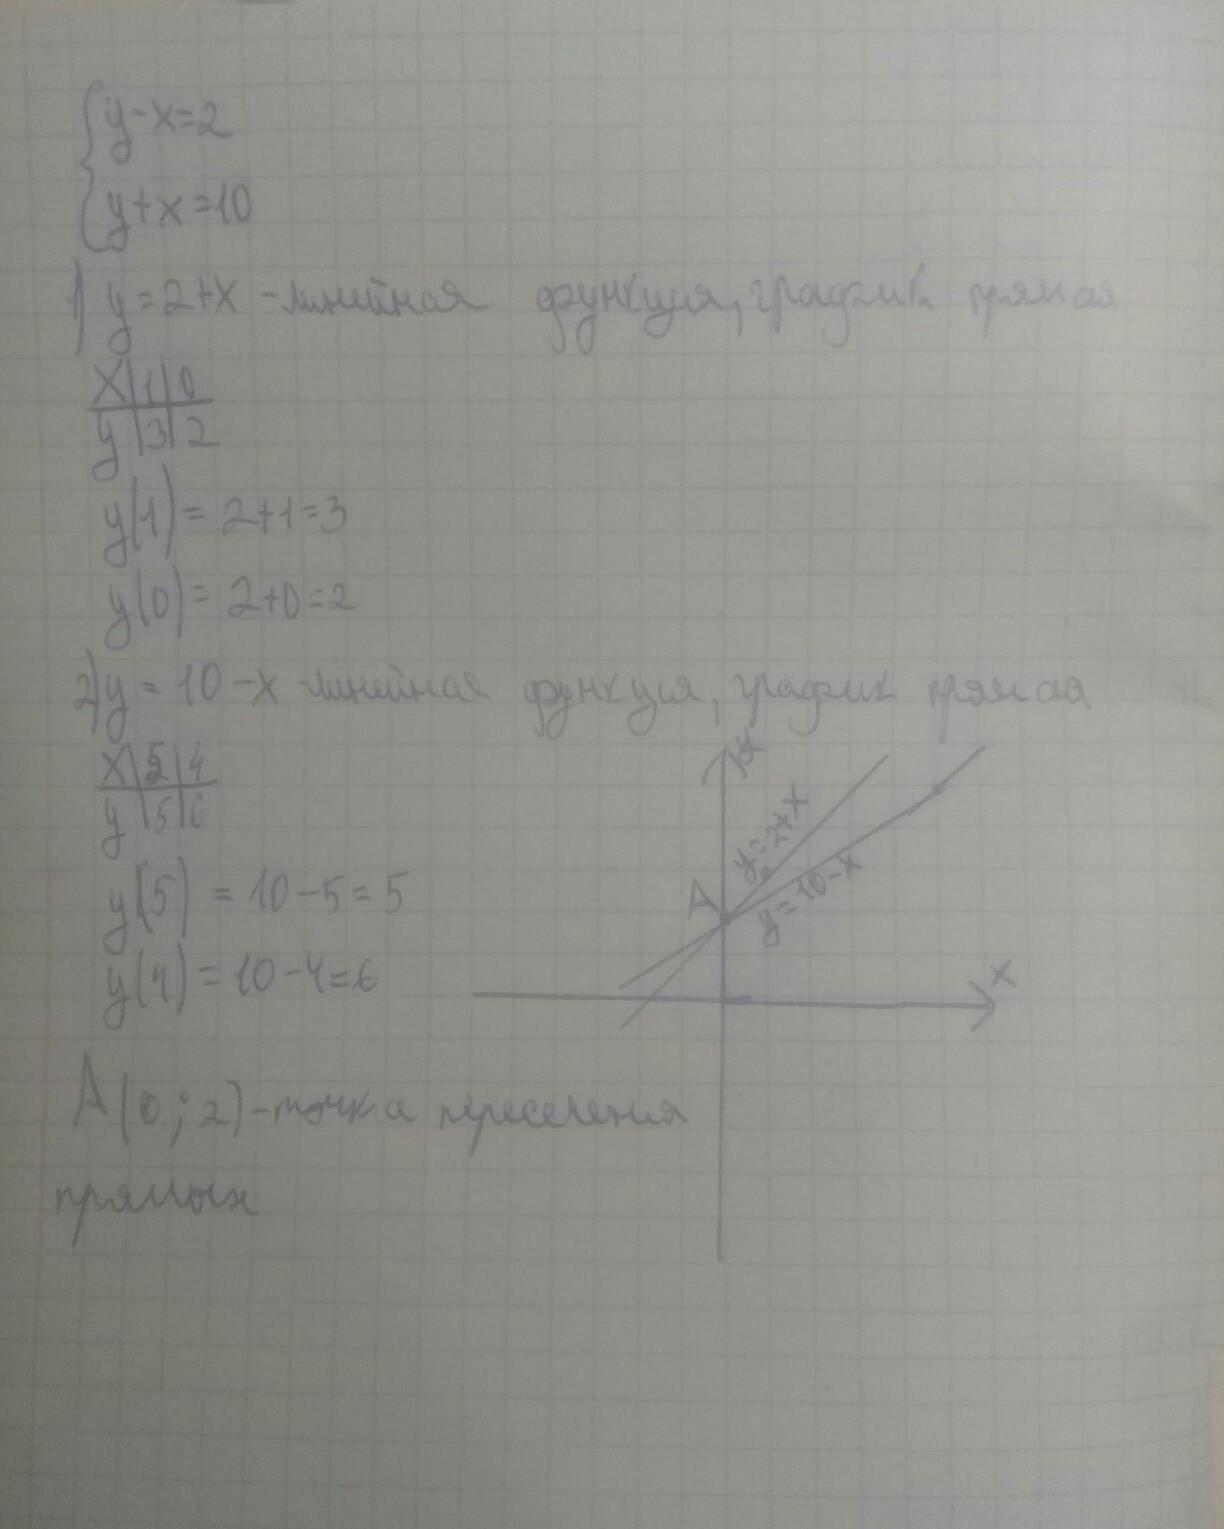 { y-x=2
y+x=10
1) y=2+x -линейная функция, график прямая
x | 1 | 0
y | 3 | 2
y(1)= 2+1=3
y(0)= 2+0=2
2) y = 10-x -линейная функция, график прямая
x | 5 | 4
y | 5 | 6
y(5) = 10-5=5
y(4) = 10-4=6
y
y=2+x
y=10-x
A
x
A(0;2)-точка пересечения
прямых